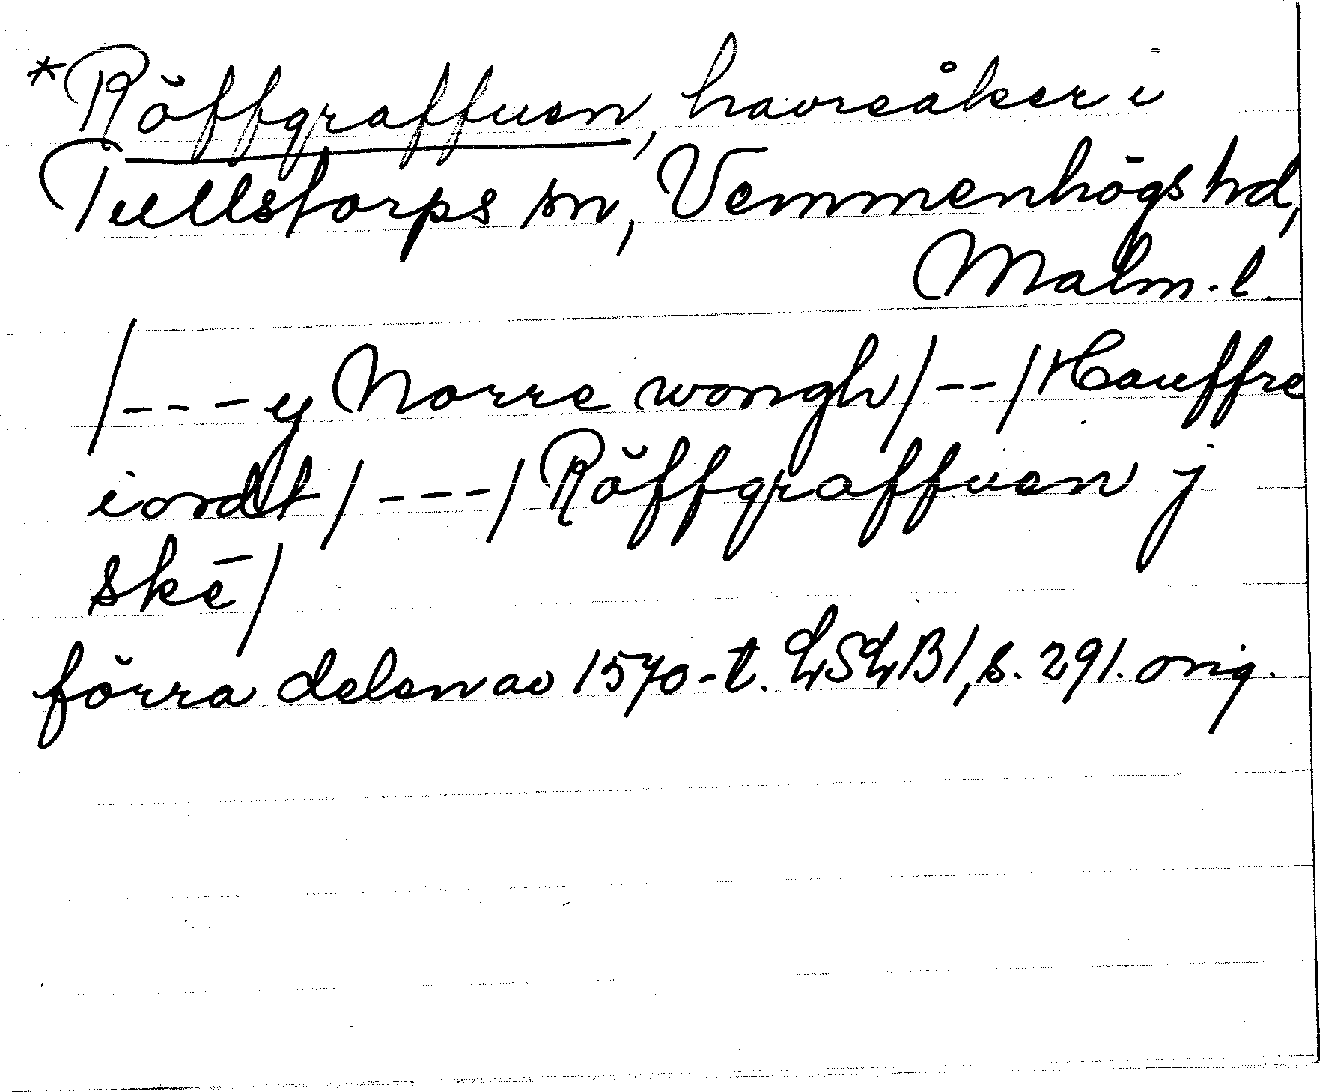 *Röffgraffuen, havreåker i
Tullstorps sn, Vemmenhögs hd,
Malm. l.
/---y Norre wongh/--/Hauffre
iordt/---/Röffgraffuen j
skē/
förra delen av 1570-t. LSLB1, s. 291. orig.